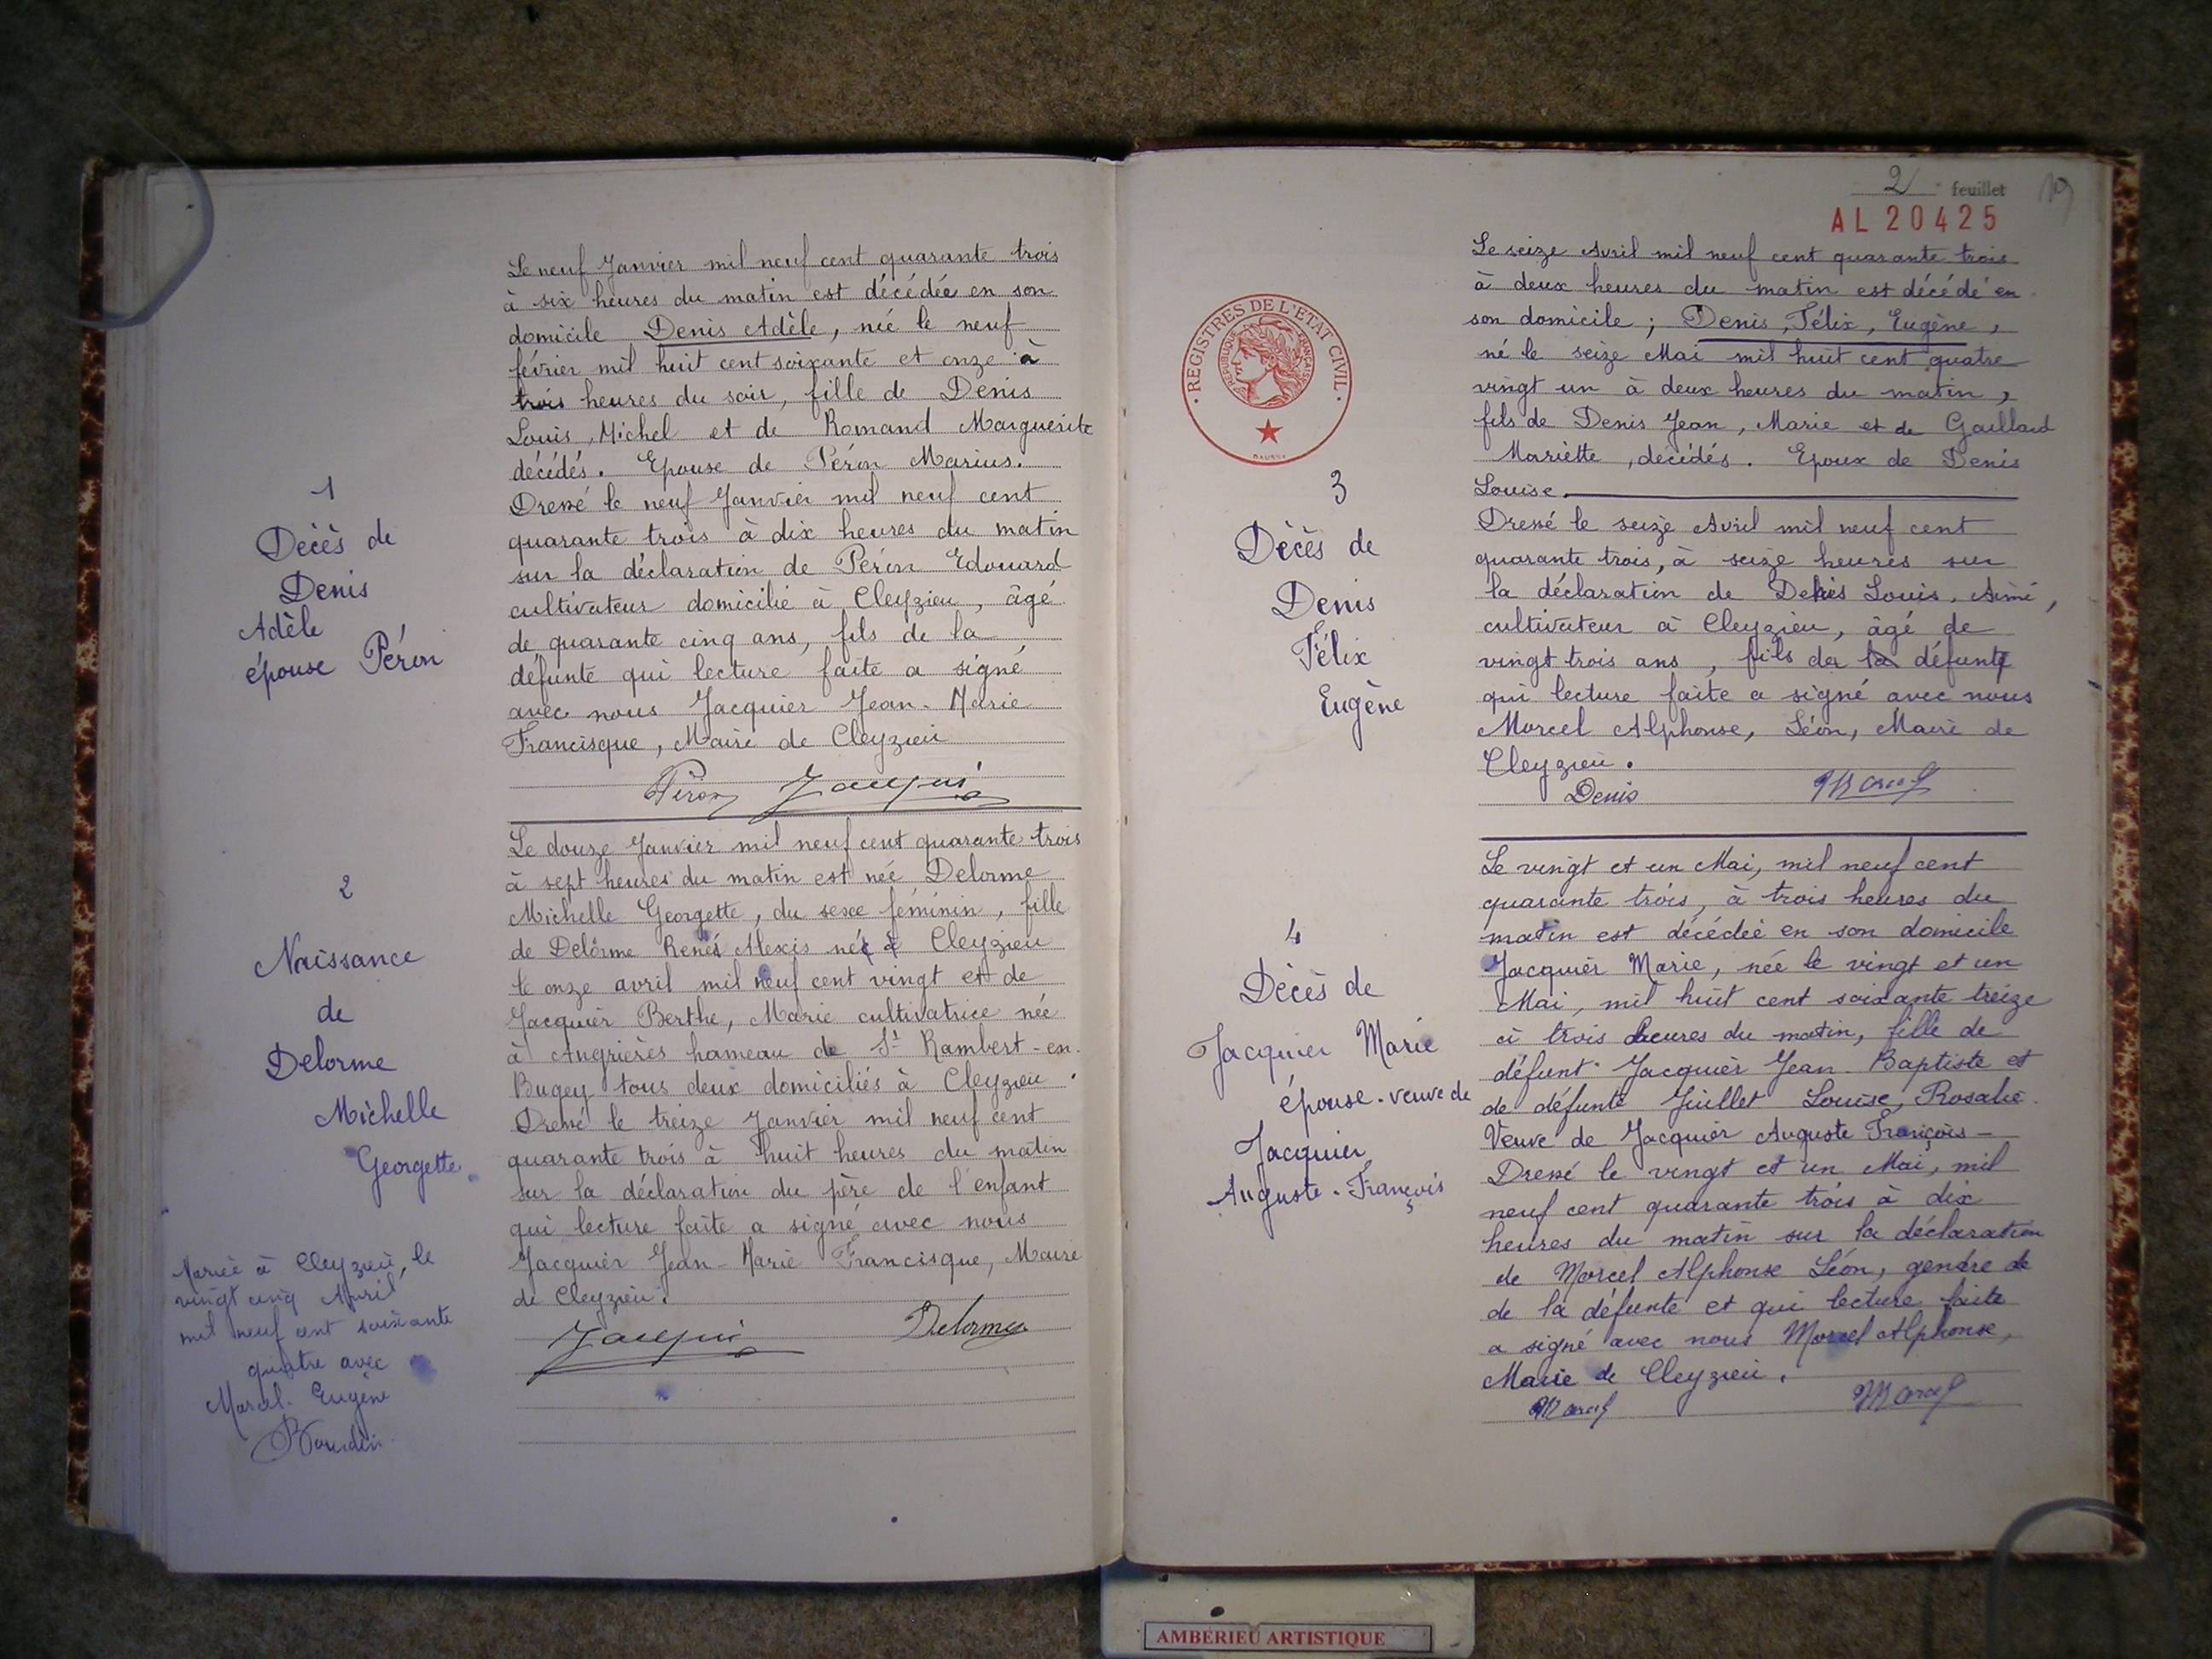 1
Décès de
Denis
Adèle
épouse Péron
Le neuf Janvier mil neuf cent quarante trois
à six heures du matin est décédée en son
domicile Denis Adèle, née le neuf
février mil huit cent soixante et onze à
trois heures du soir, fille de Denis
Louis, Michel et de Romand Marguerite
décédés. Epouse de Péron Marius.
Dressé le neuf Janvier mil neuf cent
quarante trois à dix heures du matin
sur la déclaration de Péron Edouard
cultivateur domicilié à Cleyzieu, âgé
de quarante cinq ans, fils de la
défunte qui lecture faite a signé
avec nous Jacquier Jean-Marie
Francisque, Maire de Cleyzieu
Péron Jacquier
2
Naissance
de
Delorme
Michelle
Georgette
Le douze Janvier mil neuf cent quarante trois
à sept heures du matin est née Delorme
Michelle Georgette, du sexe féminin, fille
de Delorme René Alexis né à Cleyzieu
le onze avril mil neuf cent vingt et de
Jacquier Berthe, Marie cultivatrice née
à Angrières hameau de St Rambert-en-
Bugey tous deux domiciliés à Cleyzieu.
Dressé le treize Janvier mil neuf cent
quarante trois à huit heures du matin
sur la déclaration du père de l'enfant
qui lecture faite a signé avec nous
Jacquier Jean-Marie Francisque, Maire
de Cleyzieu.
Jacquier Delorme
Mariée à Cleyzieu, le
vingt cinq Avril
mil neuf cent soixante
quatre avec
Marcel. Eugène
2 feuillet
AL 20425
REGISTRES DE L'ETAT CIVIL
REPUBLIQUE FRANÇAISE
3
Décès de
Denis
Félix
Eugène
Le seize Avril mil neuf cent quarante trois
à deux heures du matin est décédé en
son domicile; Denis, Félix, Eugène,
né le seize Mai mil huit cent quatre
vingt un à deux heures du matin,
fils de Denis Jean, Marie et de Gaillard
Mariette, décédés. Epoux de Denis
Louise.
Dressé le seize Avril mil neuf cent
quarante trois, à seize heures sur
la déclaration de Denis Louis, Aimé,
cultivateur à Cleyzieu, âgé de
vingt trois ans, fils du la défunt
qui lecture faite a signé avec nous
Marcel Alphonse, Léon, Maire de
Cleyzieu.
Denis Marcel
4
Décès de
Jacquier Marie
épouse-veuve de
Jacquier
Auguste-François
Le vingt et un Mai, mil neuf cent
quarante trois, à trois heures du
matin est décédée en son domicile
Jacquier Marie, née le vingt et un
Mai, mil huit cent soixante treize
à trois heures du matin, fille de
défunt Jacquier Jean-Baptiste et
de défunte Juillet Louise, Rosalie.
Veuve de Jacquier Auguste François-
Dressé le vingt et un Mai, mil
neuf cent quarante trois à dix
heures du matin sur la déclaration
de Marcel Alphonse Léon, gendre de
de la défunte et qui lecture faite
a signé avec nous Marcel Alphonse,
Maire de Cleyzieu.
Marcel Marcel
AMBÉRIEU ARTISTIQUE